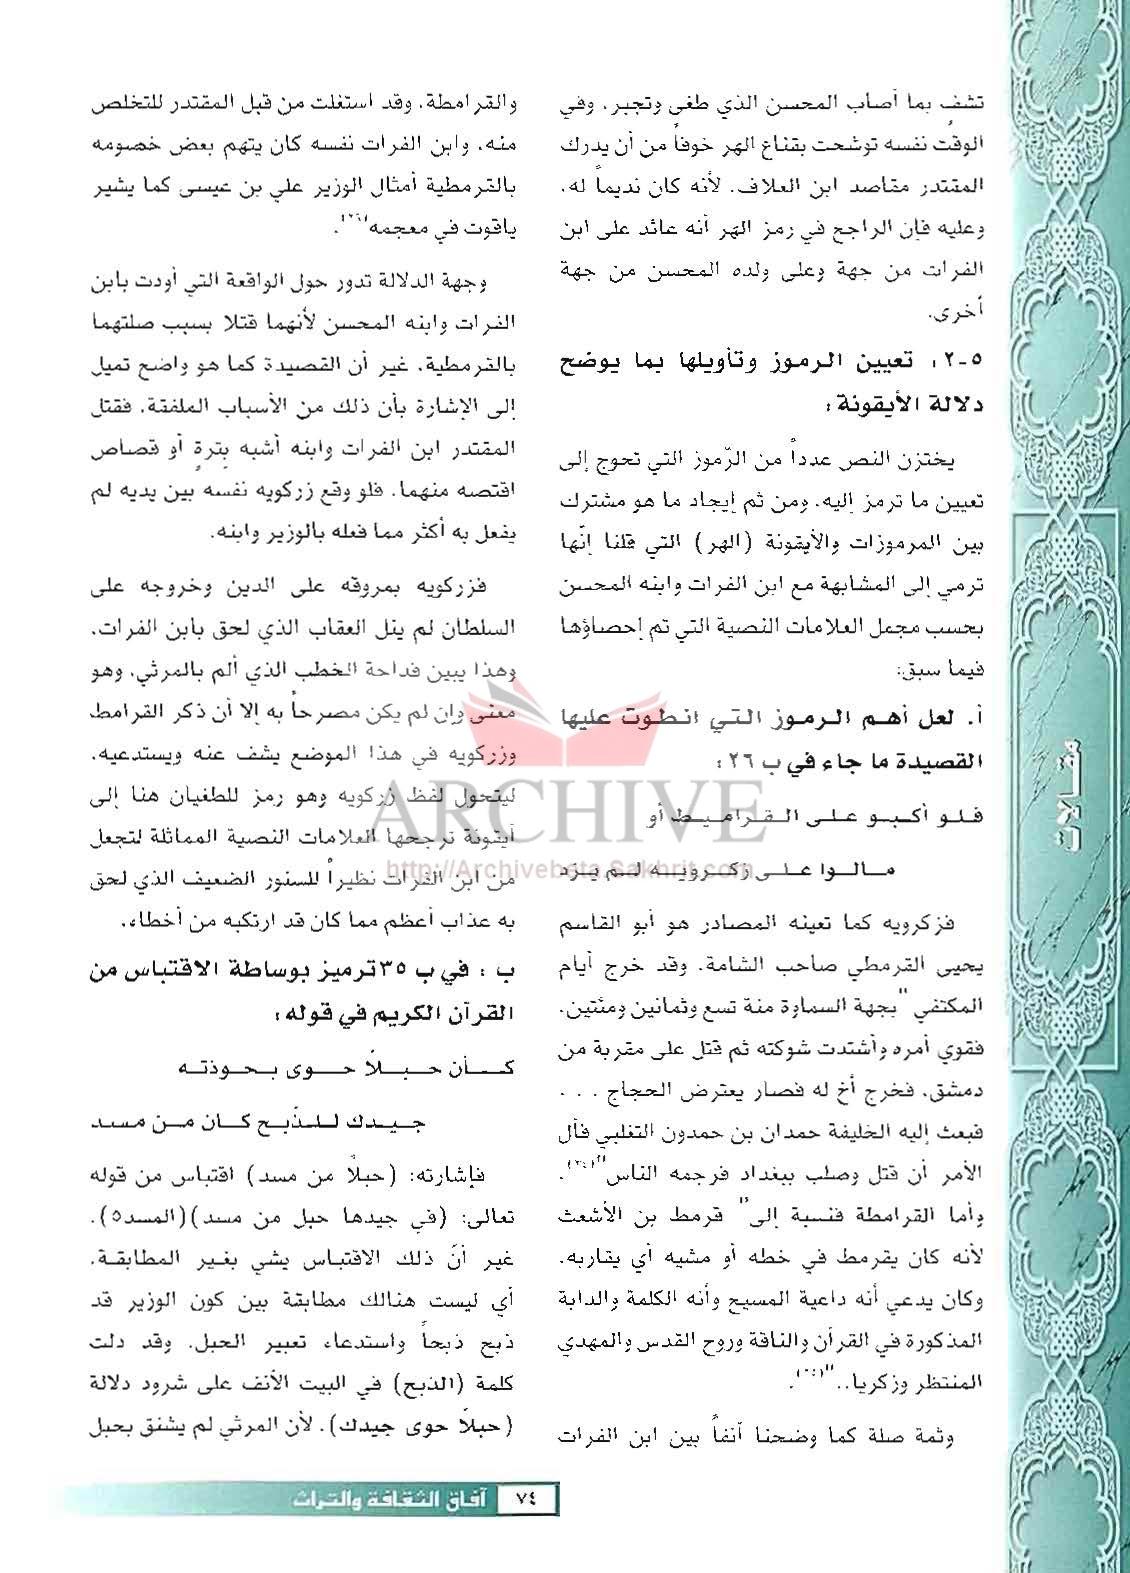 تشفٍ بما أصاب المحسن الذي طغى وتجبر، وفي
الوقت نفسه توشحت بقناع الهر خوفاً من أن يدرك
المقتدر مقاصد ابن العلاف، لأنه كان نديماً له،
وعليه فإن الراجح في رمز الهر أنه عائد على ابن
الفرات من جهة وعلى ولده المحسن من جهة
أخرى.
٥-٢: تعيين الرموز وتأويلها بما يوضح
دلالة الأيقونة:
يختزن النص عدداً من الرّموز التي تحوج إلى
تعيين ما ترمز إليه، ومن ثم إيجاد ما هو مشترك
بين المرموزات والأيقونة (الهر) التي قلنا إنّها
ترمي إلى المشابهة مع ابن الفرات وابنه المحسن
بحسب مجمل العلامات النصية التي تم إحصاؤها
فيما سبق:
أ. لعل أهم الرموز التي انطوت عليها
القصيدة ما جاء في ب ٢٦:
فلو أكبو على القراميط أو
مالوا على زكرويه لم يزد
فزكرويه كما تعينه المصادر هو أبو القاسم
يحيى القرمطي صاحب الشامة، وقد خرج أيام
المكتفي "بجهة السماوة منة تسع وثمانين ومئتين،
فقوي أمره وأشتدت شوكته ثم قتل على مقربة من
دمشق، فخرج أخ له فصار يعترض الحجاج ...
فبعث إليه الخليفة حمدان بن حمدون التغلبي فأل
الأمر أن قتل وصلب ببغداد فرجمه الناس"(٢٤).
وأما القرامطة فنسبة إلى" قرمط بن الأشعث
لأنه كان يقرمط في خطه أو مشيه أي يقاربه،
وكان يدعي أنه داعية المسيح وأنه الكلمة والدابة
المذكورة في القرآن والناقة وروح القدس والمهدي
المنتظر وزكريا.."(٢٥).
وثمة صلة كما وضحنا آنفاً بين ابن الفرات
والقرامطة، وقد استغلت من قبل المقتدر للتخلص
منه، وابن الفرات نفسه كان يتهم بعض خصومه
بالقرمطية أمثال الوزير علي بن عيسى كما يشير
ياقوت في معجمه(٢٦).
وجهة الدلالة تدور حول الواقعة التي أودت بابن
الفرات وابنه المحسن لأنهما قتلا بسبب صلتهما
بالقرمطية، غير أن القصيدة كما هو واضح تميل
إلى الإشارة بأن ذلك من الأسباب الملفقة، فقتل
المقتدر ابن الفرات وابنه أشبه بترةٍ أو قصاص
اقتصه منهما، فلو وقع زركويه نفسه بين يديه لم
يفعل به أكثر مما فعله بالوزير وابنه.
فزركويه بمروقه على الدين وخروجه على
السلطان لم ينل العقاب الذي لحق بابن الفرات،
وهذا يبين فداحة الخطب الذي ألم بالمرثي، وهو
معنى وإن لم يكن مصرحاً به إلا أن ذكر القرامط
وزركويه في هذا الموضع يشف عنه ويستدعيه،
ليتحول لفظ زركويه وهو رمز للطغيان هنا إلى
أيقونة ترجحها العلامات النصية المماثلة لتجعل
من ابن الفرات نظيراً للسنور الضعيف الذي لحق
به عذاب أعظم مما كان قد ارتكبه من أخطاء.
ب : في ب ٣٥ ترميز بوساطة الاقتباس من
القرآن الكريم في قوله:
كأن حبلاً حوى بحوذته
جيدك للذّبح كان من مسد
فإشارته: (حبلاً من مسد) اقتباس من قوله
تعالى: (في جيدها حبل من مسد)(المسد٥)،
غير أنّ ذلك الاقتباس يشي بغير المطابقة،
أي ليست هنالك مطابقة بين كون الوزير قد
ذبح ذبحاً واستدعاء تعبير الحبل، وقد دلت
كلمة (الذبح) في البيت الأنف على شرود دلالة
(حبلاً حوى جيدك)، لأن المرثي لم يشنق بحبل
مقالات
ARCHIVE
http://Archivebeta.Sakhrit.com
٧٤ آفاق الثقافة والتراث